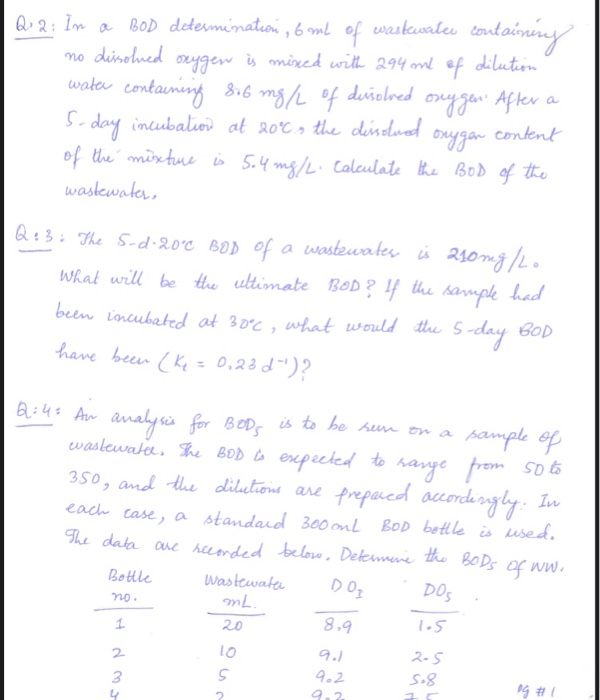 Q:2: In a BOD determination, 6 mL of wastewater containing
no dissolved oxygen is mixed with 294 ml of dilution
water containing 8.6 mg/L of dissolved oxygen. After a
5-day incubation at 20°C, the dissolved oxygen content
of the mixture is 5.4 mg/L. Calculate the BOD of the
wastewater.
Q:3: The 5-d-20°C BOD of a wastewater is 210mg/L.
What will be the ultimate BOD? If the sample had
been incubated at 30°C, what would the 5-day BOD
have been (K₁ = 0.23 d⁻¹)?
Q:4: An analysis for BOD₅ is to be run on a sample of
wastewater. The BOD is expected to range from 50 to
350, and the dilutions are prepared accordingly. In
each case, a standard 300ml BOD bottle is used.
The data are recorded below. Determine the BOD₅ of WW.
Bottle Wastewater DO₂ DO₅
no. mL.
1 20 8.9 1.5
2 10 9.1 2.5
3 5 9.2 5.8
4 2 9.2 7.5
Pg #1